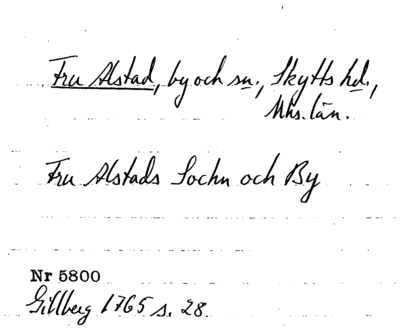 Fru Alstad, by och sn., Skytts hd.,
Mhs. län.
Fru Alstads Sochn och By
Nr 5800
Gillberg 1765 s. 28.